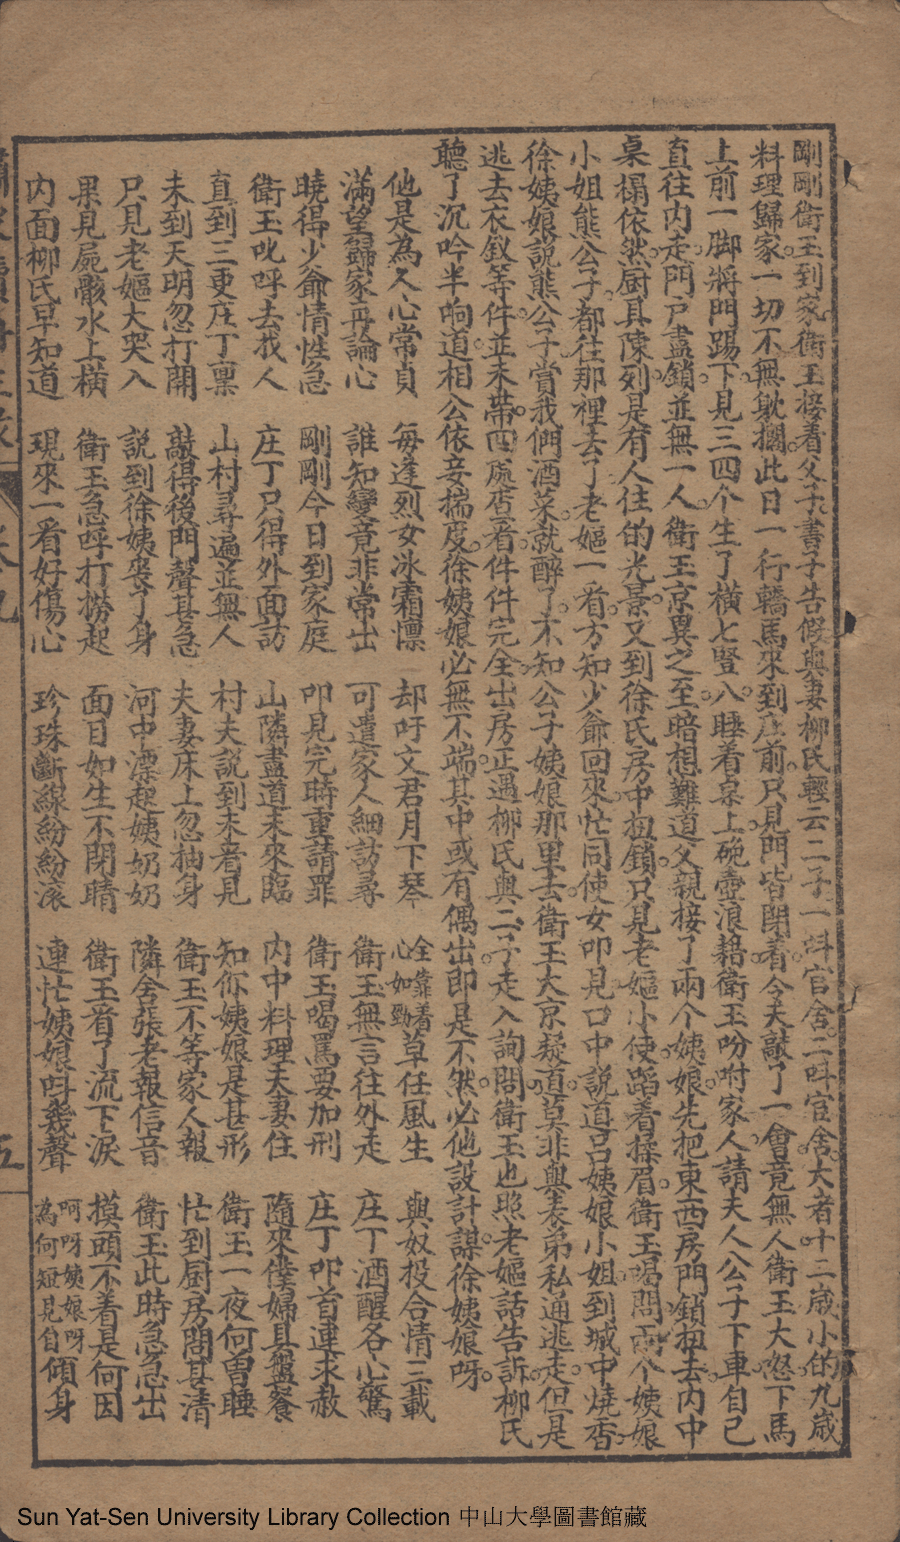 剛剛衛玉到家衛玉接着父子書子告假與妻柳氏輕云二子一呌官舍二呌官舍大者十二歲小的九歲
料理歸家一切不無躭擱此日一行轎馬來到庄前只見門皆閉着今天敲了一會竟無人衛玉大怒下馬
上前一脚將門踢下見三四个生了橫七豎八睡着桌上碗壺浪藉衛玉吩咐家人請夫人公子下車自已
直往內走門戶盡鎖並無一人衛玉京異之至暗想難道父親接了兩个姨娘先把東西房門鎖扭去內中
桌榻依然厨具陳列是有人住的光景又到徐氏房中扭鎖只見老嫗小使蹈着揉眉衛玉喝問兩个姨娘
小姐熊公子都往那裡去了老嫗一看方知少爺回來忙同使女叩見口中說道呂姨娘小姐到城中燒香
徐姨娘說熊公子賞我們酒菜就醉了不知公子姨娘那里去衛玉大京疑道莫非與表弟私通逃走但是
逃去衣釵等件並未帶四處店看件件完全出房正遇柳氏與二子走入詢問衛玉也照老嫗話告訴柳氏
聽了沉吟半晌道相公依妾揣度徐姨娘必無不端其中或有偶出卽是不然必他設計謀徐姨娘呀
他是為人心常貞　每逢烈女冰霜懍　却吁文君月下琴　全靠看草任風生　心如勁　與奴投合情三載
滿望歸家再論心　誰知變竟非常出　可遣家人細訪尋　衛玉無言往外走　庄丁酒醒各心驚
曉得少爺情性急　剛剛今日到家庭　叩見完時重請罪　衛玉喝罵要加刑　庄丁叩首連求赦
衛玉叱呼去找人　庄丁只得外面訪　山隣盡道未來臨　內中料理夫妻住　隨來僕婦具盤餐
直到三更庄丁稟　山村尋遍並無人　村夫說到未看見　知你姨娘是甚形　衛玉一夜何曾睡
未到天明忽打開　敲得後門聲甚急　夫妻床上忽抽身　衛玉不等家人報　忙到厨房問其清
只見老嫗大哭入　說到徐姨喪了身　河中漂起姨奶奶　隣舍張老報信音　衛玉此時急急出
果見屍骸水上橫　衛玉急呼打撈起　面目如生不閉睛　衛玉看了流下淚　摸頭不着是何因
內面柳氏早知道　現來一看好傷心　珍珠斷線紛紛滚　連忙姨娘呌幾聲　呵呀姨娘呀　為何短見自傾身
卷九
五
Sun Yat-Sen University Library Collection 中山大學圖書館藏